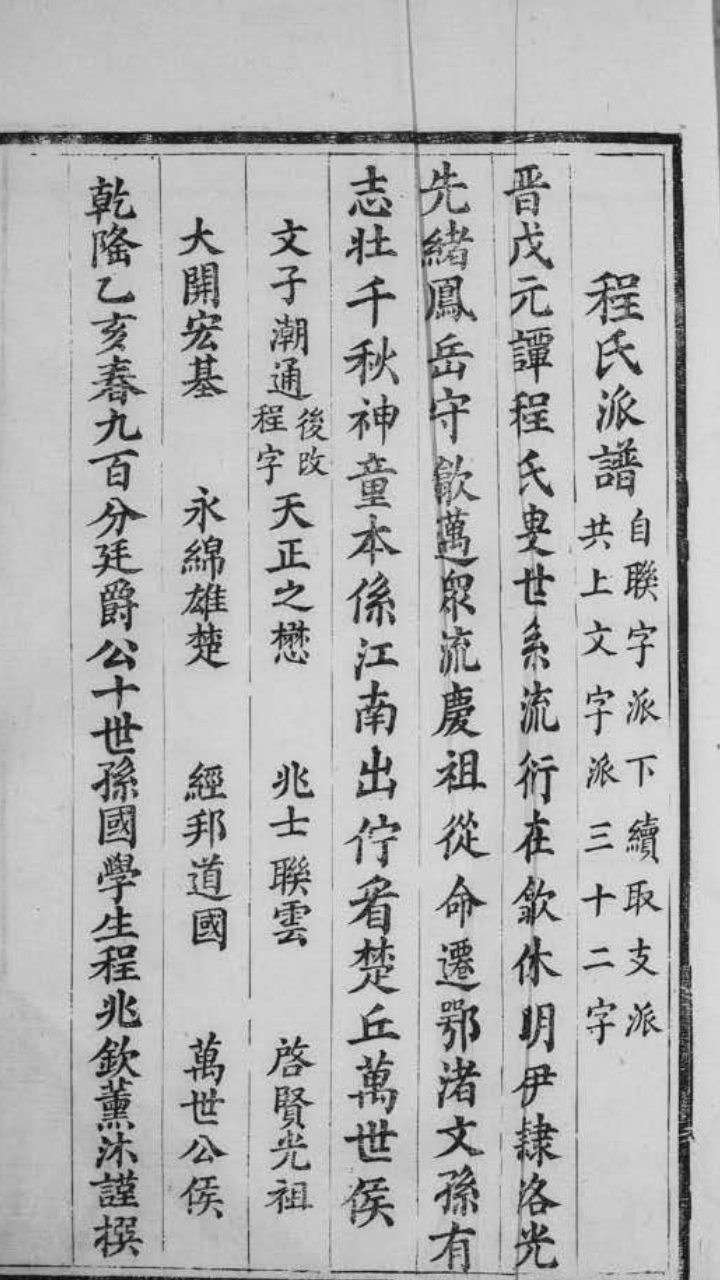 程氏派譜 自聯字派下續取支派 共上文字派三十二字
晋戊元譚程氏叟世系流衍在歙休明伊隸洛光
先緒鳳岳守歙萬眾流慶祖從命遷鄂渚文孫有
志壯千秋神童本係江南出佇看楚丘萬世侯
文子潮通 後改 程字 天正之懋 兆士聯雲 啓賢光祖
大開宏基 永綿雄楚 經邦道國 萬世公侯
乾隆乙亥春九百分廷爵公十世孫國學生程兆欽薰沐謹撰